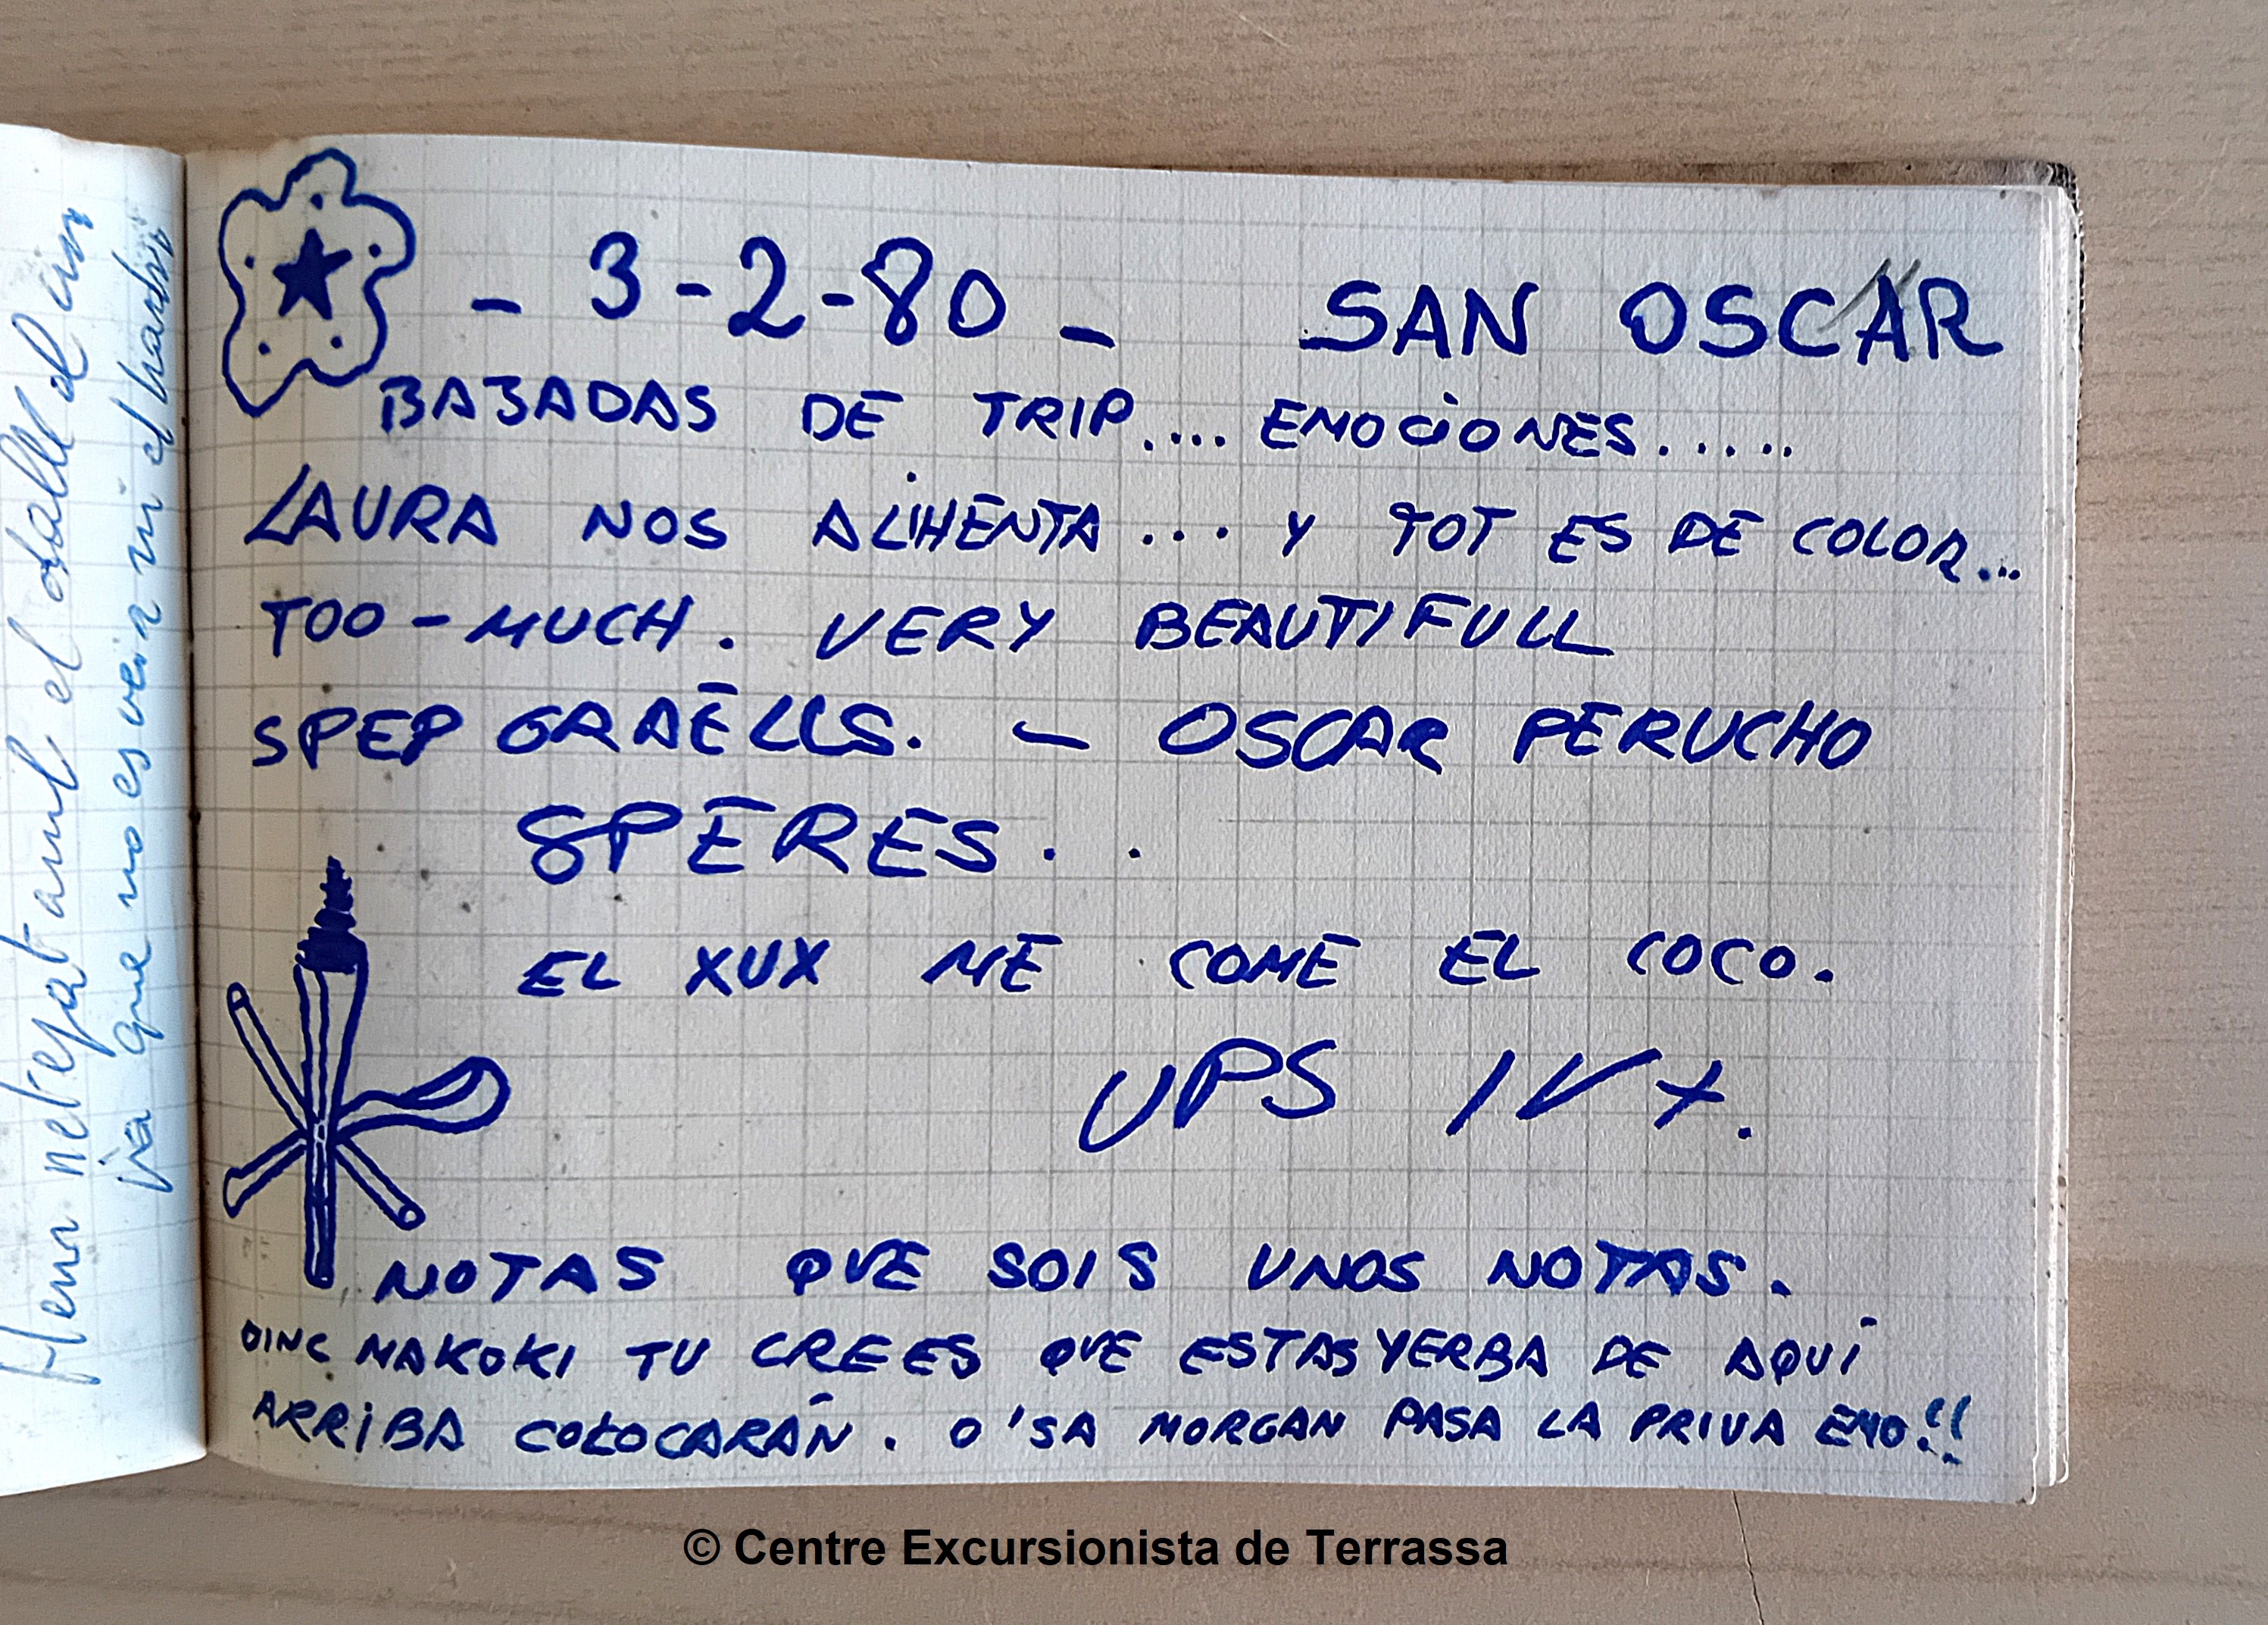 - 3-2-80 - SAN OSCAR
BAJADAS DE TRIP.... EMOCIONES.....
LAURA NOS ALIMENTA... Y TOT ES DE COLOR...
TOO-MUCH. VERY BEAUTIFULL
SPEP GRAELLS. - OSCAR PERUCHO
SPERES. .
EL XUX ME COME EL COCO.
UPS IV+.
NOTAS QUE SOIS UNOS NOTAS.
OINC MAKOKI TU CREES QUE ESTAS YERBA DE AQUÍ
ARRIBA COLOCARÁN. O'SA MORGAN PASA LA PRIVA EMO!!
ja que no es veia ni el
© Centre Excursionista de Terrassa